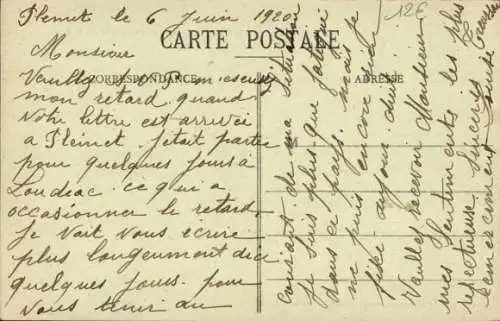 Plemet le 6 Juin 1920
12€
CARTE POSTALE
CORRESPONDANCE
ADRESSE
Monsieur
Veuillez
mon retard quand
votre lettre est arrivée
a Plemet. Jetait partie
pour quelques jours a
Loudeac. ce qui a
occasionner le retard.
Je vait vous ecrire
plus longeumont dici
quelques jours. pour
Vous tenir au
courant de ma situation
Je suis plus que fatigué
dans ce pays. mais je
ne puis encore rien
fixé aujourdhui
Veuillez recevoir Monsieur
mes sentiments les plus
respectueuse sinceres
remerciment